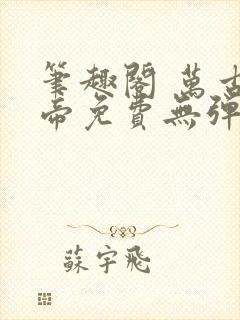 筆趣閣 萬古
帝免費無彈
蘇宇飛